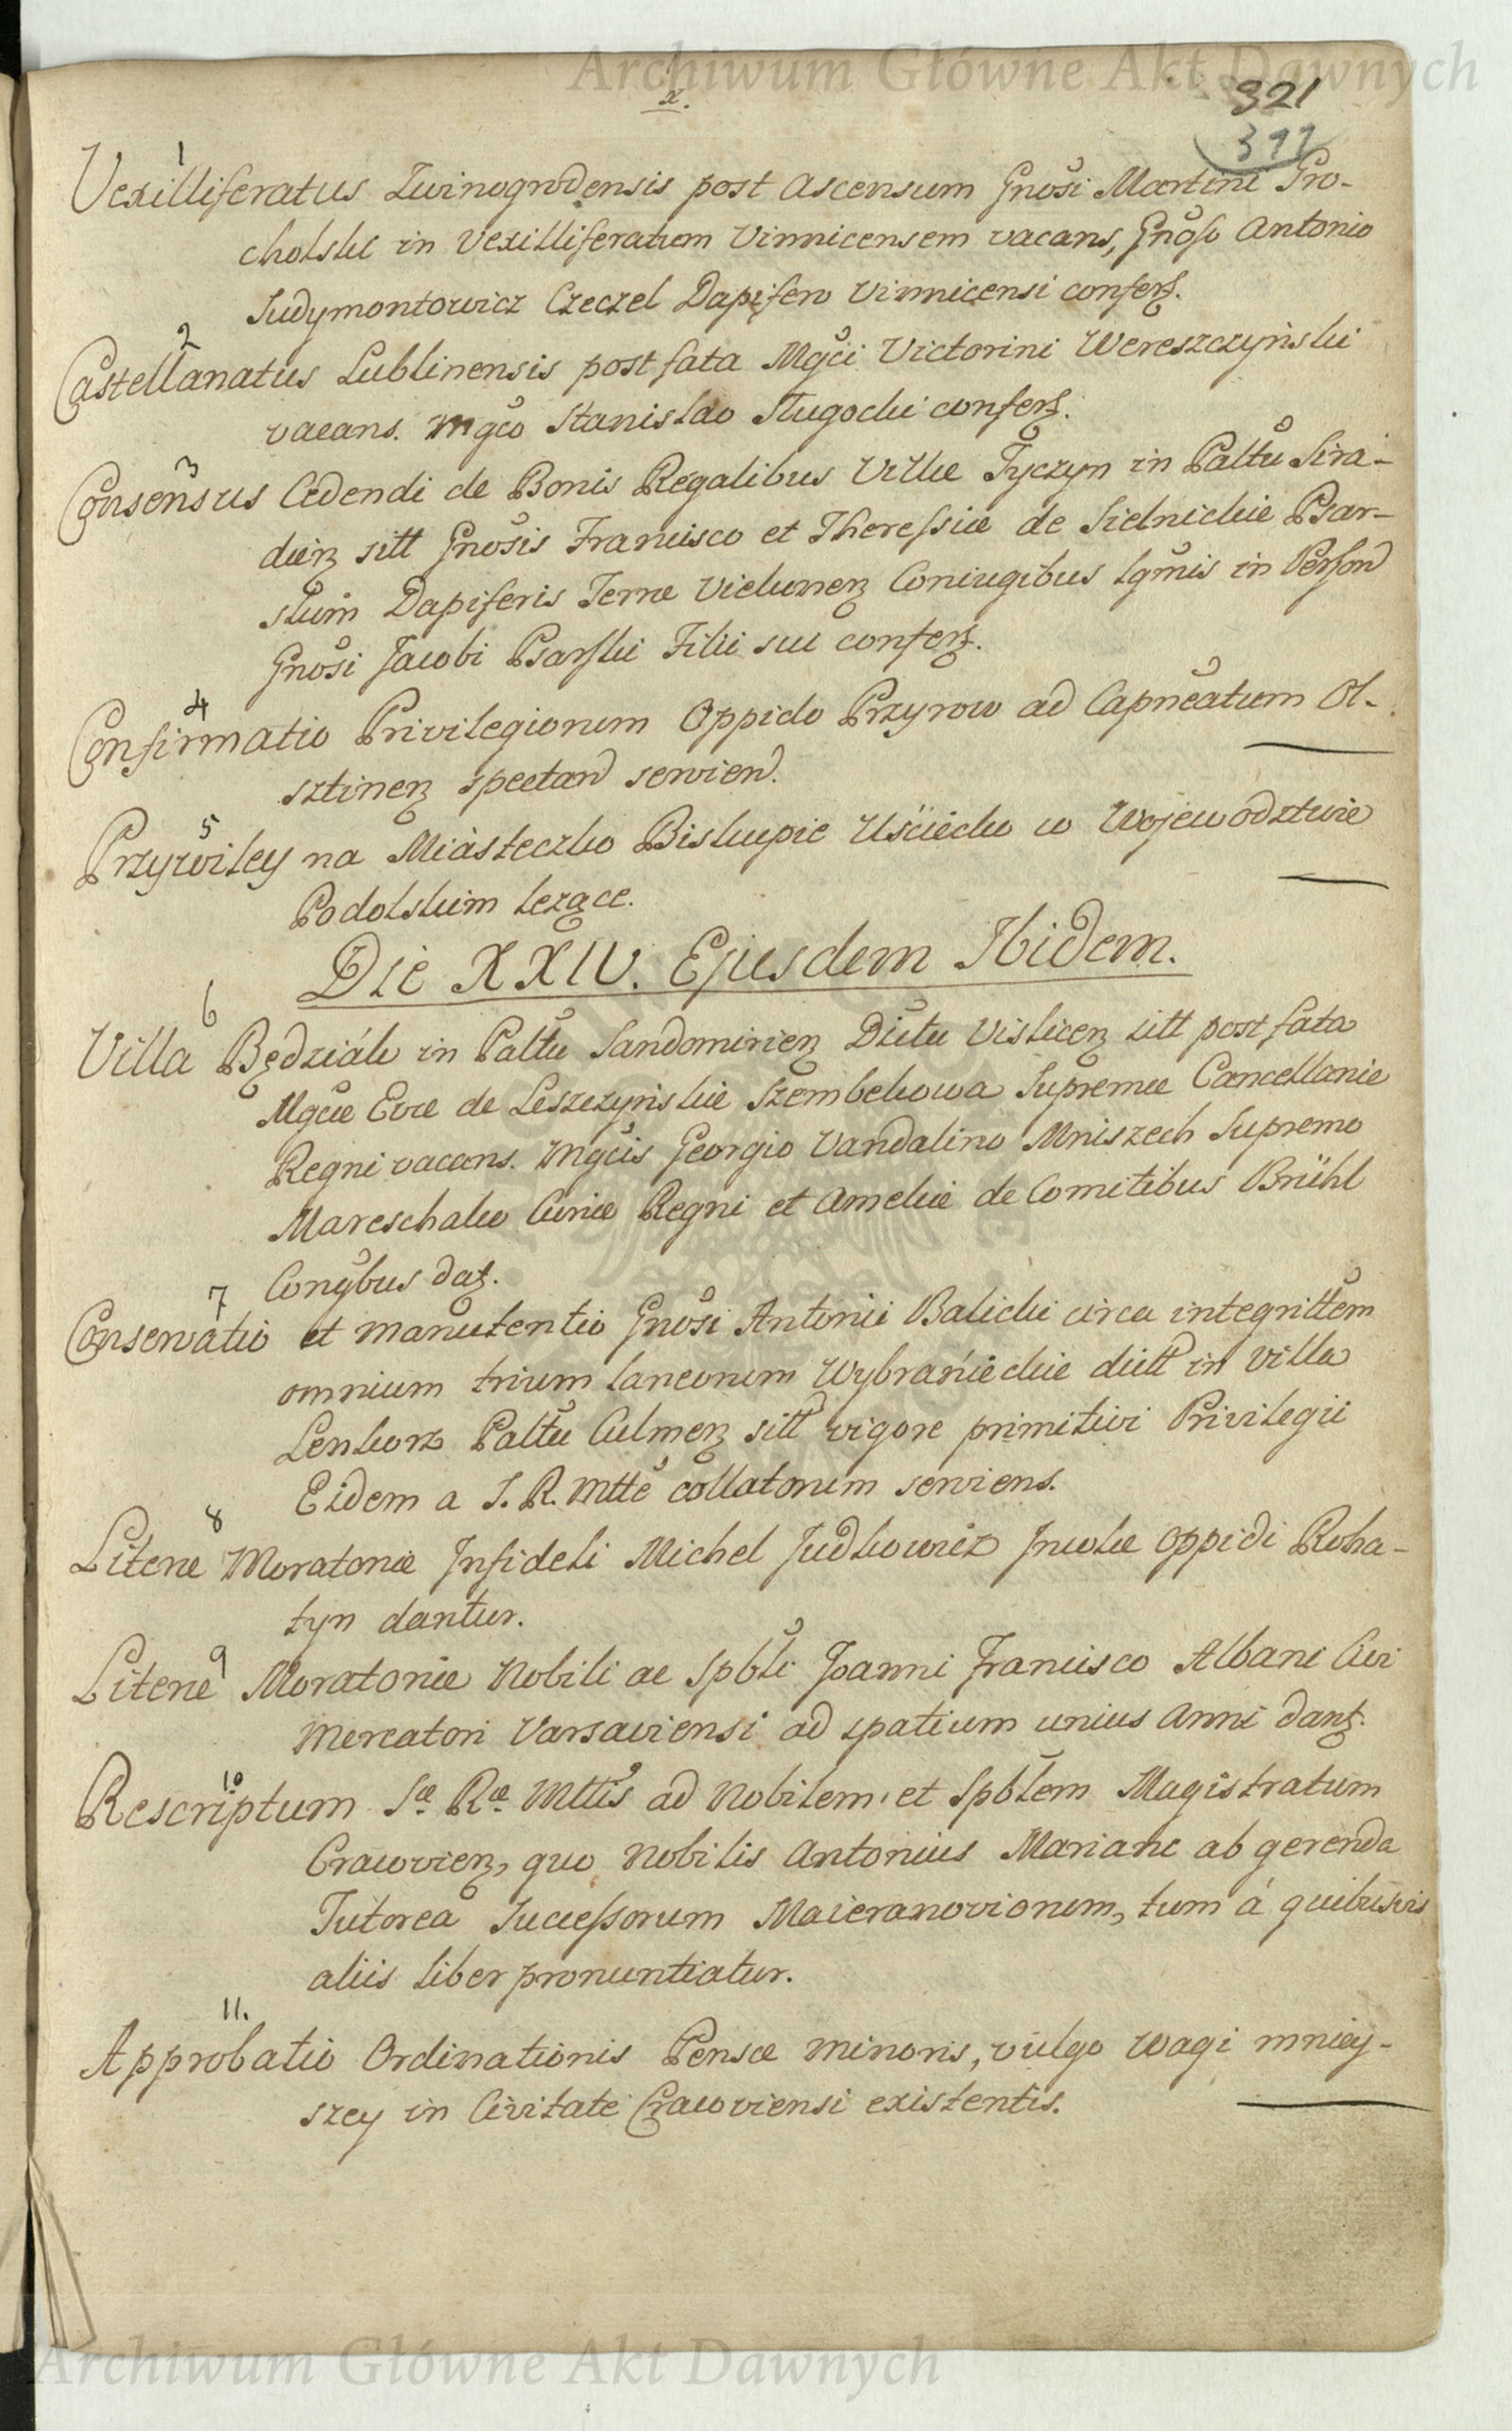 Archiwum Główne Akt Dawnych
x.
321
1
Vexilliferatus Zwinogrodensis post ascensum Gnosi Martini Gro-
cholski in Vexilliferatum Vinnicensem vacans, Gnoso Antonio
Judymontowicz Czeczel Dapifero Vinnicensi confertz.
2
Castellanatus Lublinensis post fata Mgci Victorini Wereszczyński
vacans. Mgco Stanislao Sługocki confertz.
3
Consensus Cedendi de Bonis Regalibus Villæ Tyczyn in Palttu Sira-
dien sitt Gnosis Francisco et Theressiæ de Sielnickie Psar-
skim Dapiferis Terræ Vielunen Coniugibus lgmis in Person
Gnosi Jacobi Psarski Filii sui confertz.
4
Confirmatio Privilegiorum Oppido Przyrow ad Capneatum Ol-
sztinen spectan servien.
5
Przywiley na Miasteczko Biskupie Uście w Wojewodztwie
Podolskim lezące.
Die XXIV. Ejusdem Ibidem.
6
Villa Będziáki in Palttu Sandomirien Dictu Vislicen sitt post fata
Mgcæ Evæ de Leszczyńskie Szembekowa Supremæ Cancellariæ
Regni vacans. Mgcis Georgio Vandalino Mniszech Supremo
Mareschalco Curiæ Regni et Ameliæ de Comitibus Brühl
Conjbus datz.
7
Conservatio et manutentio Gnosi Antonii Balicki circa integrittem
omnium trium laneorum Wybranieckie dictt in Villa
Lenkorz Palttu Culmen sitt vigore primitivi Privilegii
Eidem a S. R. Mtte collatorum serviens.
8
Literæ Moratoriæ Infideli Michel Judkowicz Incolæ Oppidi Roha-
tyn dantur.
9
Literæ Moratoriæ Nobili ac Spbli Joanni Francisco Albani Civi
Mercatori Varsaviensi ad spatium unius Anni dantz.
10
Rescriptum Sæ Ræ Mttis ad Nobilem et Spblem Magistratum
Cracovien, quo Nobilis Antonius Mariani ab gerenda
Tutorea Successorum Maieranovionum, tum á quibusvis
aliis liber pronuntiatur.
11.
Approbatio Ordinationis Pensæ minoris, vulgo Wagi mniey-
szey in Civitate Cracoviensi existentis.
Archiwum Główne Akt Dawnych